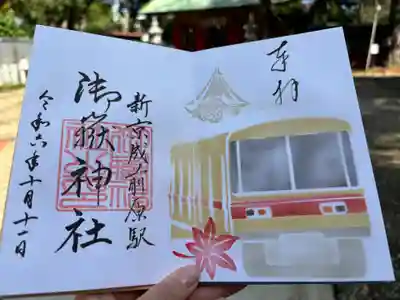 奉拝
新京成前原駅
御嶽神社
令和六年十月十一日